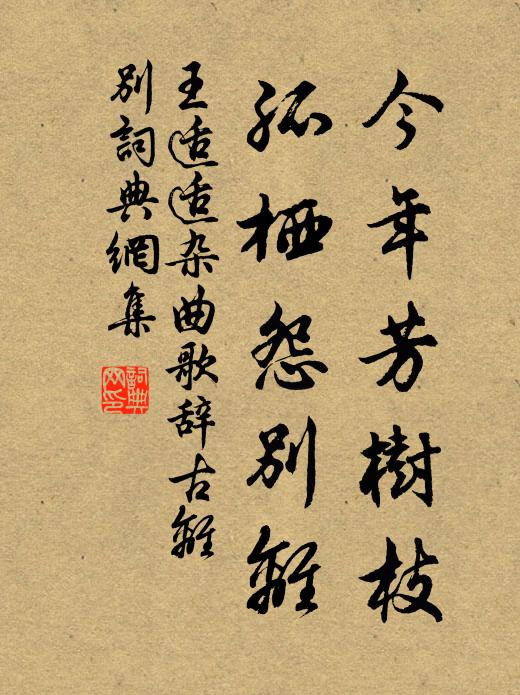 今年芳樹枝
孤栖怨別離
王适适杂曲歌辞古離
別詞典網集
詞典网印